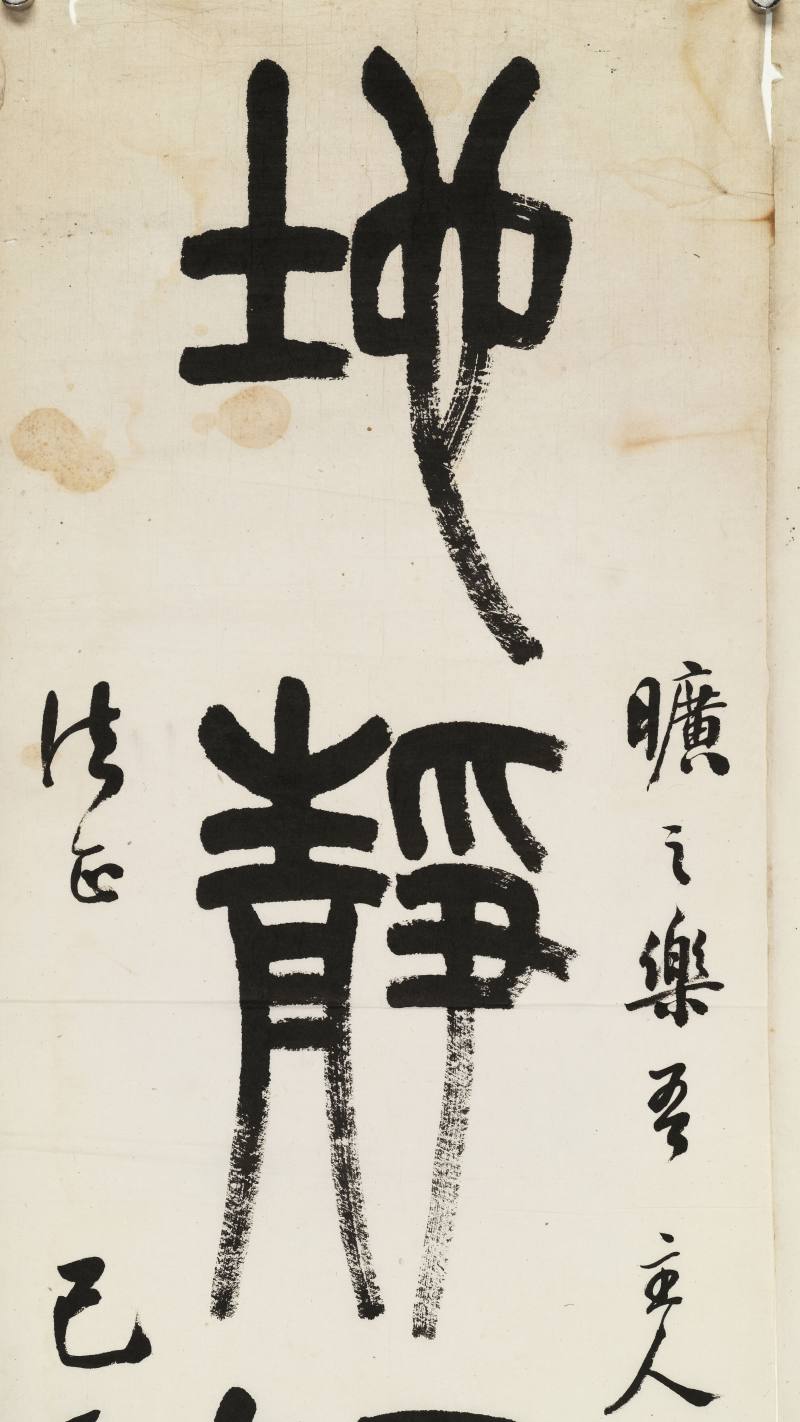 曠之樂吾主人
地靜
法正
己